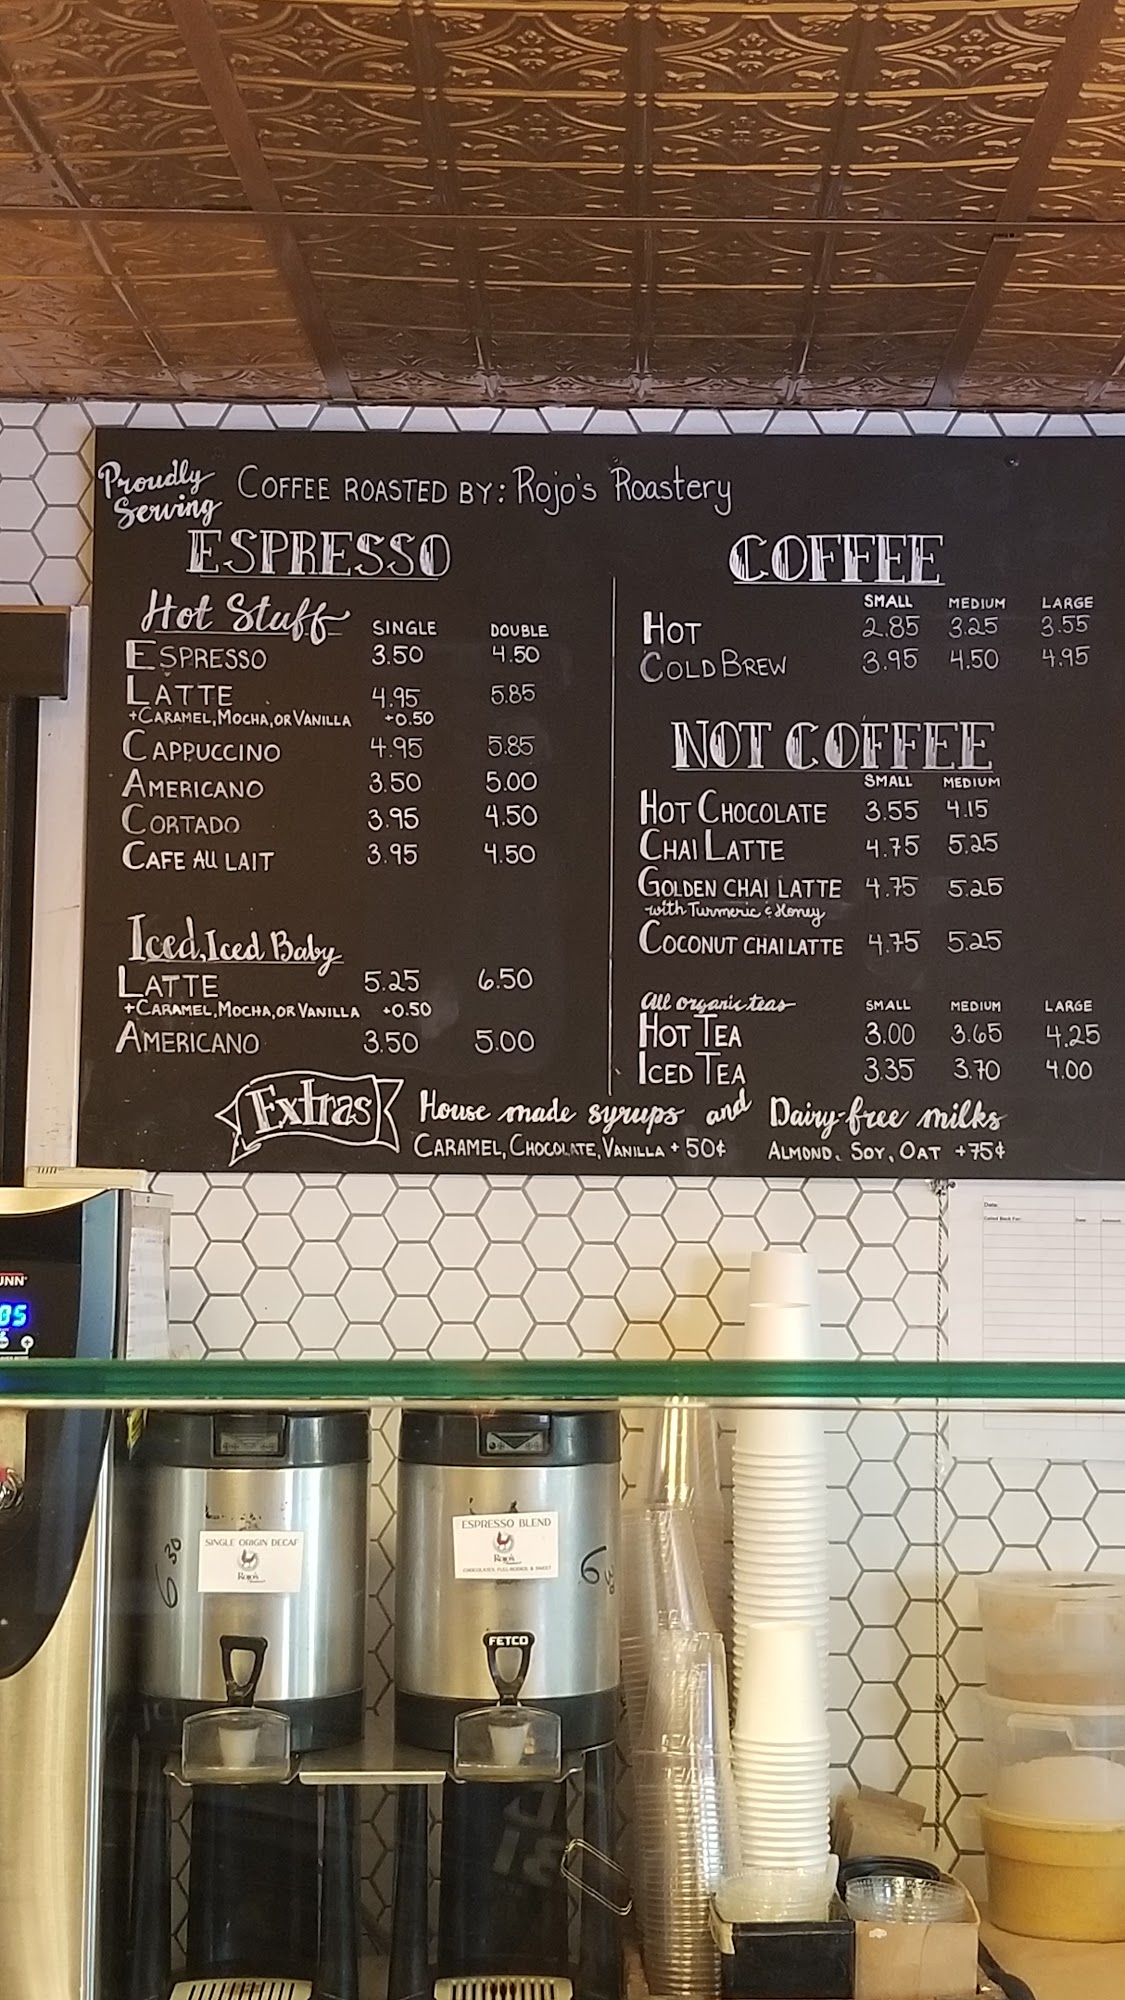 Proudly Serving
COFFEE ROASTED BY: Rojo's Roastery
ESPRESSO
Hot Stuff SINGLE DOUBLE
ESPRESSO 3.50 4.50
LATTE 4.95 5.85
+CARAMEL, MOCHA, OR VANILLA +0.50
CAPPUCCINO 4.95 5.85
AMERICANO 3.50 5.00
CORTADO 3.95 4.50
CAFE AU LAIT 3.95 4.50
Iced, Iced Baby
LATTE 5.25 6.50
+CARAMEL, MOCHA, OR VANILLA +0.50
AMERICANO 3.50 5.00
COFFEE
SMALL MEDIUM LARGE
HOT 2.85 3.25 3.55
COLD BREW 3.95 4.50 4.95
NOT COFFEE
SMALL MEDIUM
HOT CHOCOLATE 3.55 4.15
CHAI LATTE 4.75 5.25
GOLDEN CHAI LATTE 4.75 5.25
with Turmeric & Honey
COCONUT CHAI LATTE 4.75 5.25
All organic teas SMALL MEDIUM LARGE
HOT TEA 3.00 3.65 4.25
ICED TEA 3.35 3.70 4.00
Extras House made syrups and Dairy-free milks
CARAMEL, CHOCOLATE, VANILLA + 50¢ ALMOND, SOY, OAT +75¢
Date:
UNN
05
SINGLE ORIGIN DECAF
Rojo's
6 30
ESPRESSO BLEND
Rojo's
CHOCOLATEY, FULL-BODIED, & SWEET
6
FETCO